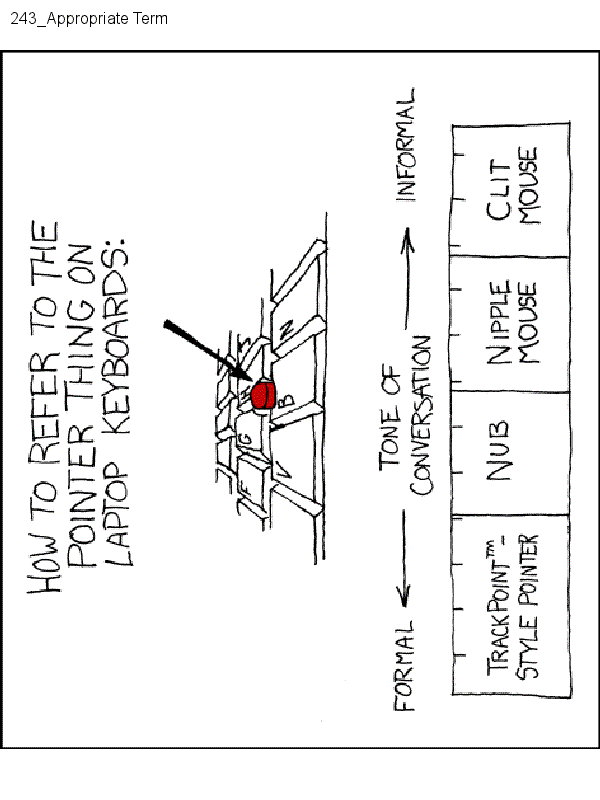 243_Appropriate Term
HOW TO REFER TO THE
POINTER THING ON
LAPTOP KEYBOARDS:
F G H J
V B N
FORMAL
TONE OF
CONVERSATION
INFORMAL
TRACKPOINT™-
STYLE POINTER
NUB
NIPPLE
MOUSE
CLIT
MOUSE